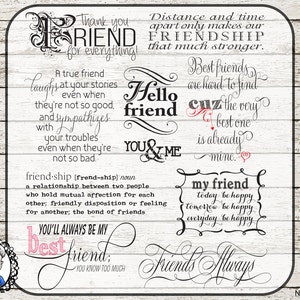 Thank you
FRIEND
for everything!
Distance and time
apart only makes our
FRIENDSHIP
that much stronger.
A true friend
laughs at your stories
even when
they're not so good,
and sympathizes
with
your troubles
even when
they're not
so bad.
Hello
friend
YOU & ME
Best friends
are hard to find
cuz the very
best one
is already
mine.
friend·ship [frend-ship] noun
a relationship between two people
who hold mutual affection for each
other; friendly disposition or feeling
for another; the bond of friends
my friend
today be happy
tomorrow be happy
everyday be happy
YOU'LL ALWAYS BE MY
best
friend,
YOU KNOW TOO MUCH
Friends Always
N